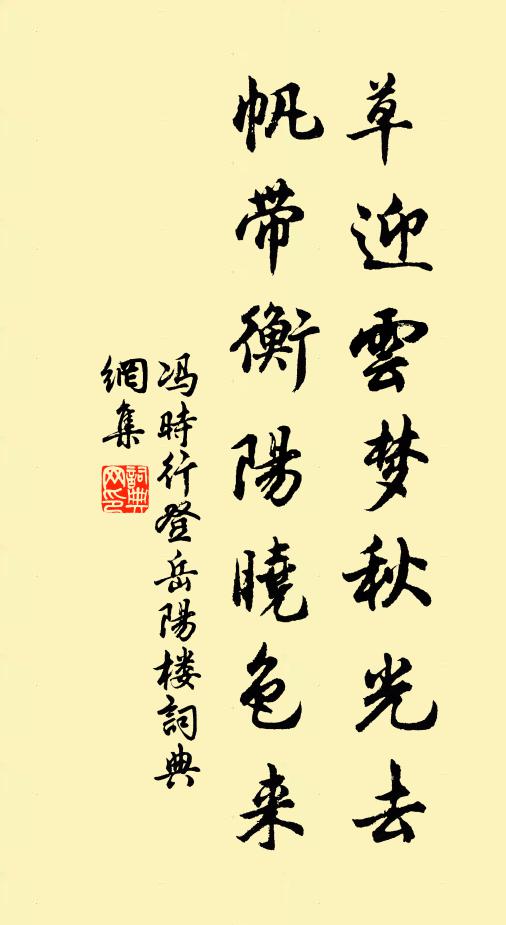 草迎雲梦秋光去
帆带衡陽曉色来
冯時行登岳陽楼詞典
網集
詞典网印